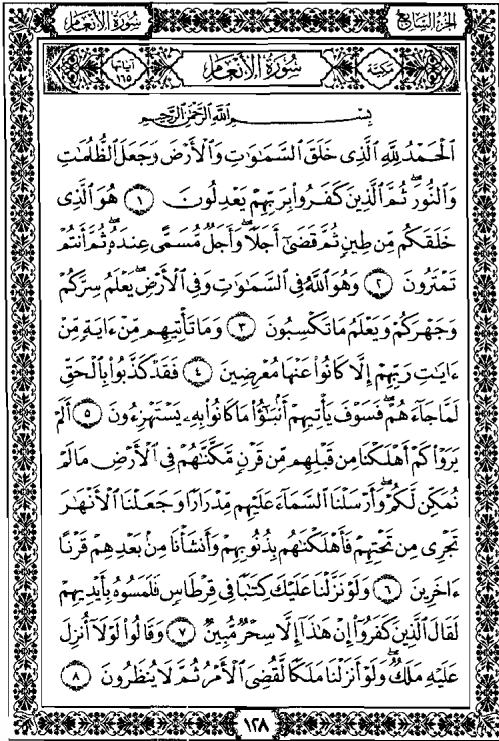 سُورَةُ الأَنْعَامِ
الجُزْءُ السَّابِعُ
مَكِّيَّة
سُورَةُ الأَنْعَامِ
آيَاتُهَا ١٦٥
بِسْمِ اللَّهِ الرَّحْمَٰنِ الرَّحِيمِ
ٱلْحَمْدُ لِلَّهِ ٱلَّذِى خَلَقَ ٱلسَّمَٰوَٰتِ وَٱلْأَرْضَ وَجَعَلَ ٱلظُّلُمَٰتِ
وَٱلنُّورَۖ ثُمَّ ٱلَّذِينَ كَفَرُوا۟ بِرَبِّهِمْ يَعْدِلُونَ ١ هُوَ ٱلَّذِى
خَلَقَكُم مِّن طِينٍ ثُمَّ قَضَىٰٓ أَجَلًاۖ وَأَجَلٌ مُّسَمًّى عِندَهُۥۖ ثُمَّ أَنتُمْ
تَمْتَرُونَ ٢ وَهُوَ ٱللَّهُ فِى ٱلسَّمَٰوَٰتِ وَفِى ٱلْأَرْضِۖ يَعْلَمُ سِرَّكُمْ
وَجَهْرَكُمْ وَيَعْلَمُ مَا تَكْسِبُونَ ٣ وَمَا تَأْتِيهِم مِّنْ ءَايَةٍ مِّنْ
ءَايَٰتِ رَبِّهِمْ إِلَّا كَانُوا۟ عَنْهَا مُعْرِضِينَ ٤ فَقَدْ كَذَّبُوا۟ بِٱلْحَقِّ
لَمَّا جَآءَهُمْۖ فَسَوْفَ يَأْتِيهِمْ أَنۢبَٰٓؤُا۟ مَا كَانُوا۟ بِهِۦ يَسْتَهْزِءُونَ ٥ أَلَمْ
يَرَوْا۟ كَمْ أَهْلَكْنَا مِن قَبْلِهِم مِّن قَرْنٍ مَّكَّنَّٰهُمْ فِى ٱلْأَرْضِ مَا لَمْ
نُمَكِّن لَّكُمْ وَأَرْسَلْنَا ٱلسَّمَآءَ عَلَيْهِم مِّدْرَارًا وَجَعَلْنَا ٱلْأَنْهَٰرَ
تَجْرِى مِن تَحْتِهِمْ فَأَهْلَكْنَٰهُم بِذُنُوبِهِمْ وَأَنشَأْنَا مِنۢ بَعْدِهِمْ قَرْنًا
ءَاخَرِينَ ٦ وَلَوْ نَزَّلْنَا عَلَيْكَ كِتَٰبًا فِى قِرْطَاسٍ فَلَمَسُوهُ بِأَيْدِيهِمْ
لَقَالَ ٱلَّذِينَ كَفَرُوٓا۟ إِنْ هَٰذَآ إِلَّا سِحْرٌ مُّبِينٌ ٧ وَقَالُوا۟ لَوْلَآ أُنزِلَ
عَلَيْهِ مَلَكٌۖ وَلَوْ أَنزَلْنَا مَلَكًا لَّقُضِىَ ٱلْأَمْرُ ثُمَّ لَا يُنظَرُونَ ٨
١٢٨